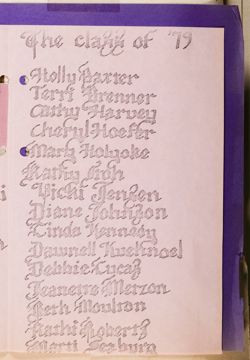 The class of '79
Holly Baxter
Terri Brenner
Cathy Harvey
Cheryl Hoefer
Mary Holyoke
Kathy
Vicki Jensen
Diane Johnson
Linda Kennedy
Dawnell Kuehnoel
Debbie Lucas
Jeanette Merzon
Beth Moulton
Kathi Roberts
Marti Seaburg